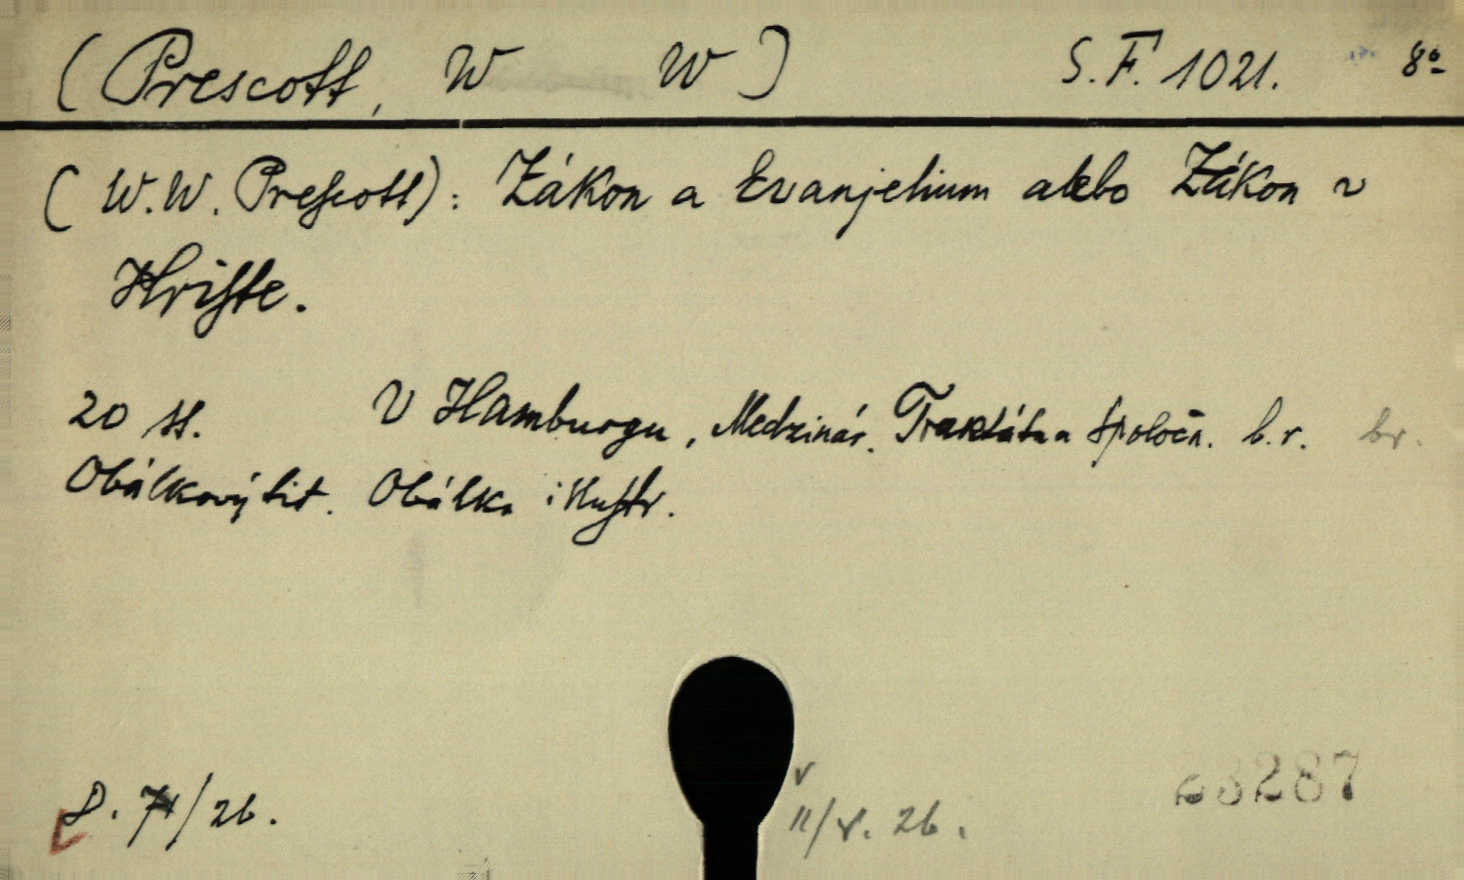 (Prescott, W W) S.F. 1021. 8°
(W.W. Prescott): Zákon a Evanjelium alebo Zákon v
Kriste.
20 st. V Hamburgu, Medzinár. Traktátna spoločn. b.r. br.
Obálkový tit. Obálka illustr.
D. /26.
v
11/V. 26.
23287